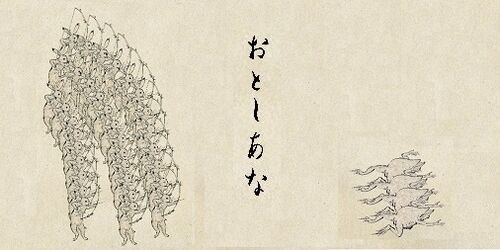 おとしあな